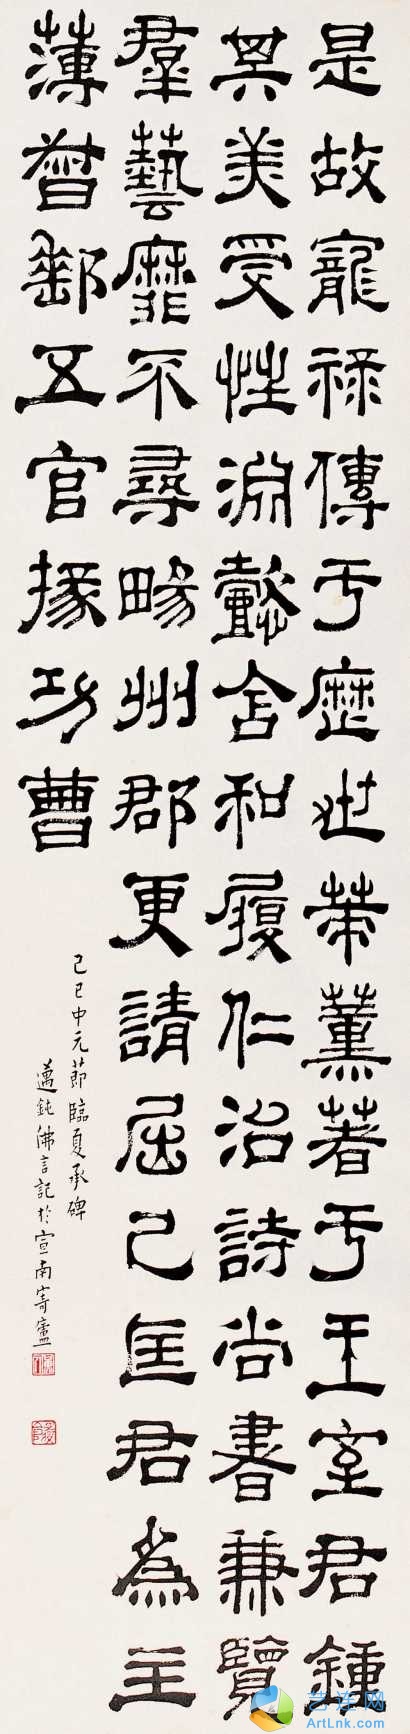 是故寵祿傳于歷世策薰著于王室君鍾
其美受性淵懿含和履仁治詩尚書兼覽
羣藝靡不尋暢州郡更請屈己匡君為主
薄督郵五官掾功曹
己巳中元節臨夏承碑
邁鈍佛言記於宣南寄廬
艺连网
ArtLnk.com